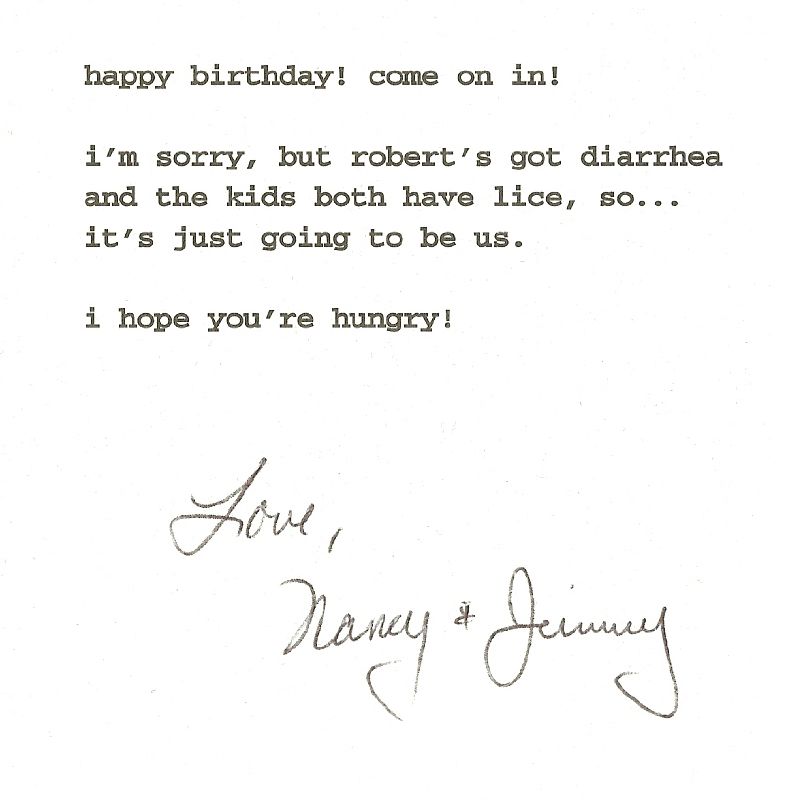 happy birthday! come on in!
i'm sorry, but robert's got diarrhea
and the kids both have lice, so...
it's just going to be us.
i hope you're hungry!
Love,
Nancy & Jimmy